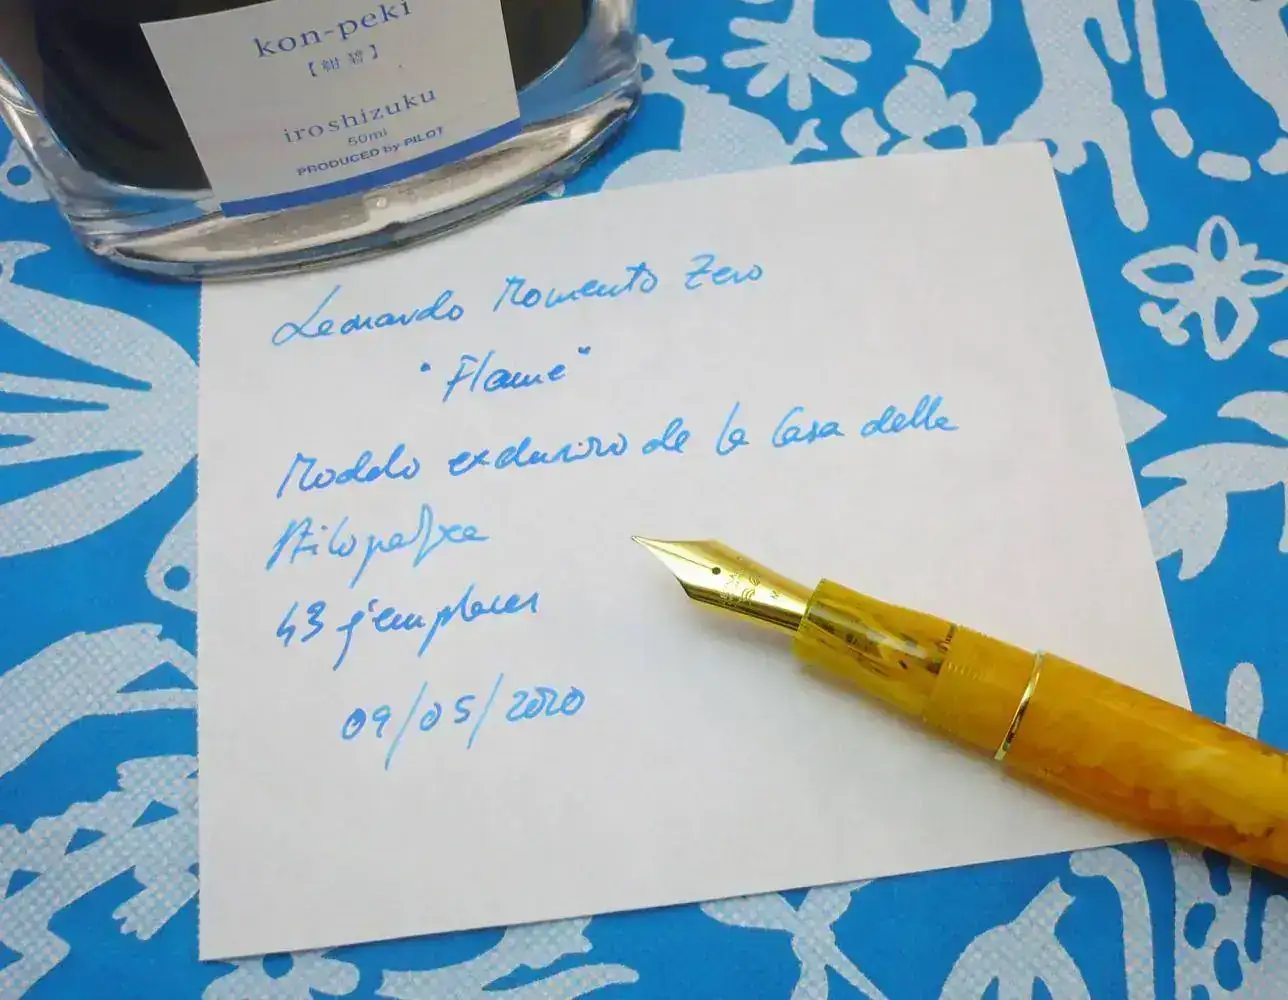 kon-peki
【紺碧】
iroshizuku
50ml
PRODUCED by PILOT
Leonardo Momento Zero
"Flame"
Modelo exclusivo de la Casa della
Stilografica
43 ejemplares
09/05/2020